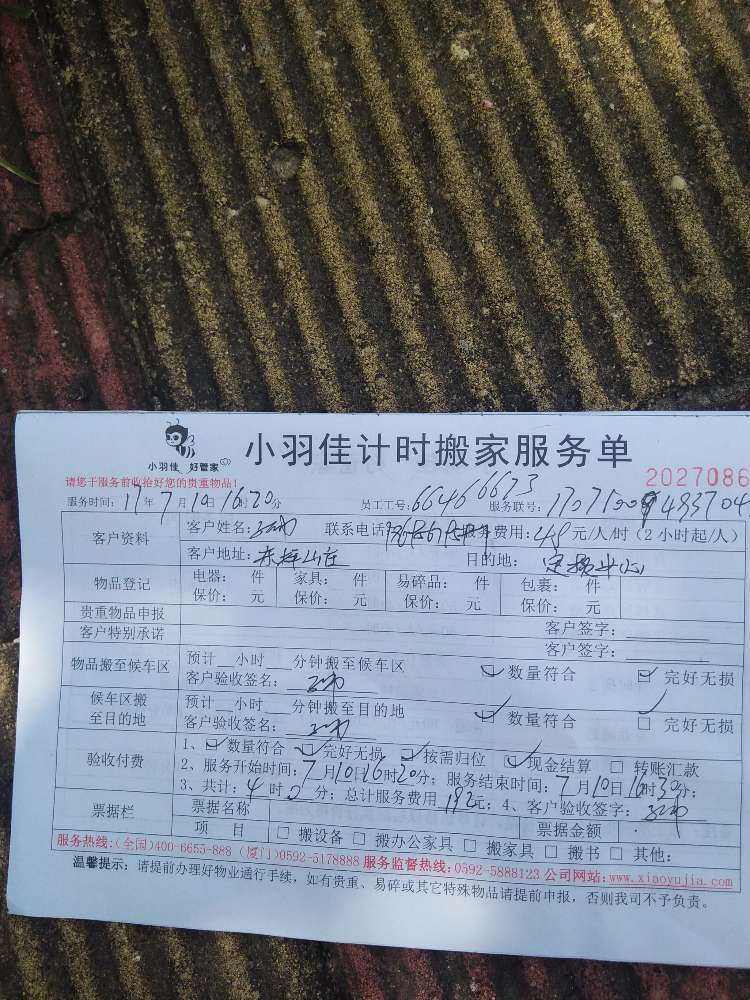 小羽佳 好管家
小羽佳计时搬家服务单
2027086
请您于服务前收拾好您的贵重物品!
服务时间: 17年 7月 10日 16时 20分 员工工号: 66466673 服务联号:
客户资料 客户姓名: 联系电话 服务费用: 48元/人/时 (2小时起/人)
客户地址: 东坪山庄 目的地:
物品登记 电器: 件 家具: 件 易碎品: 件 包裹: 件
保价: 元 保价: 元 保价: 元 保价: 元
贵重物品申报 客户签字:
客户特别承诺 客户签字:
物品搬至候车区 预计__小时__分钟搬至候车区 数量符合 完好无损
客户验收签名:
候车区搬至目的地 预计__小时__分钟搬至目的地 数量符合 完好无损
客户验收签名:
验收付费 1、数量符合 完好无损 按需归位 现金结算 转账汇款
2、服务开始时间: 7月10日16时20分; 服务结束时间: 7月10日 时30分;
3、共计: 4时0分; 总计服务费用 192元; 4、客户验收签字:
票据栏 票据名称 票据金额
项 目 搬设备 搬办公家具 搬家具 搬书 其他:
服务热线: (全国)400-6655-888 (厦门)0592-5178888 服务监督热线: 0592-5888123 公司网站: www.xiaoyujia.com
温馨提示: 请提前办理好物业通行手续, 如有贵重、易碎或其它特殊物品请提前申报, 否则我司不予负责。